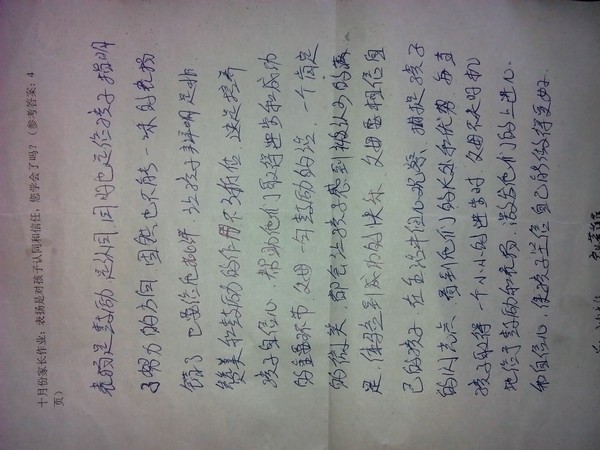 十月份家长作业：表扬是对孩子认同和信任，您学会了吗？（参考答案：4
页）
表扬是鼓励是认同，同时也是给孩子指明
了努力的方向，固然也不能一味的表扬
错了，已要给他批评，让孩子辨明是非
赞美和鼓励的作用不可低估，这是培养
孩子自信心，帮助他们取得进步和成功
的重要环节，父母一句鼓励的话，一个肯定
的微笑，都会让孩子感到被认可的满
足，体验到成功的快乐，父母要相信自
己的孩子，在生活中细心观察，捕捉孩子
的闪光点，看到他们的长处和优势，每当
孩子取得一个小小的进步时，父母不失时机
地给予鼓励和表扬，激发他们的上进心
和自信心，使孩子坚信自己能做得更好。